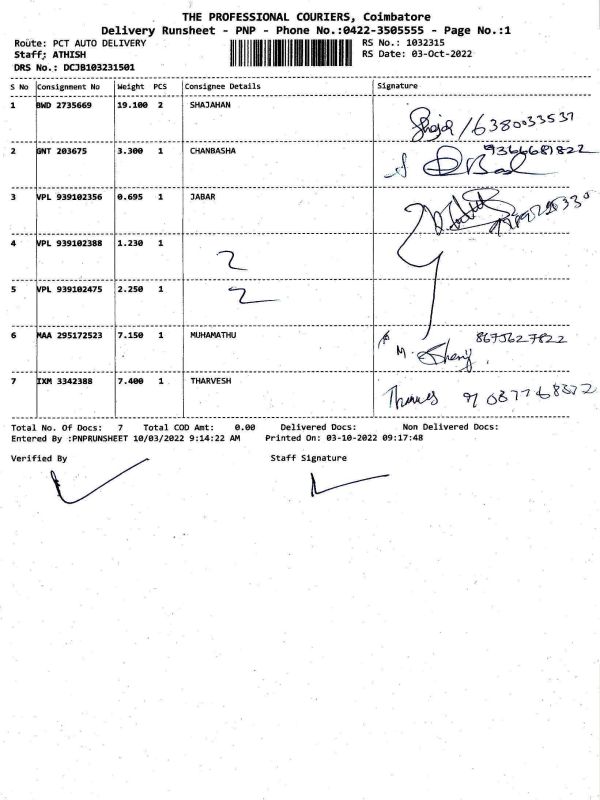 THE PROFESSIONAL COURIERS, Coimbatore
Delivery Runsheet - PNP - Phone No.:0422-3505555 - Page No.:1
Route: PCT AUTO DELIVERY
Staff; ATHISH
DRS No.: DCJB103231501
RS No.: 1032315
RS Date: 03-Oct-2022
S No Consignment No Weight PCS Consignee Details Signature
1 BWD 2735669 19.100 2 SHAJAHAN
/6380033537
2 GNT 203675 3.300 1 CHANBASHA 9366681822
3 VPL 939102356 0.695 1 JABAR
4 VPL 939102388 1.230 1
5 VPL 939102475 2.250 1
6 MAA 295172523 7.150 1 MUHAMATHU 8675627822
M.
7 IXM 3342388 7.400 1 THARVESH
Total No. Of Docs: 7 Total COD Amt: 0.00 Delivered Docs: Non Delivered Docs:
Entered By :PNPRUNSHEET 10/03/2022 9:14:22 AM Printed On: 03-10-2022 09:17:48
Verified By Staff Signature